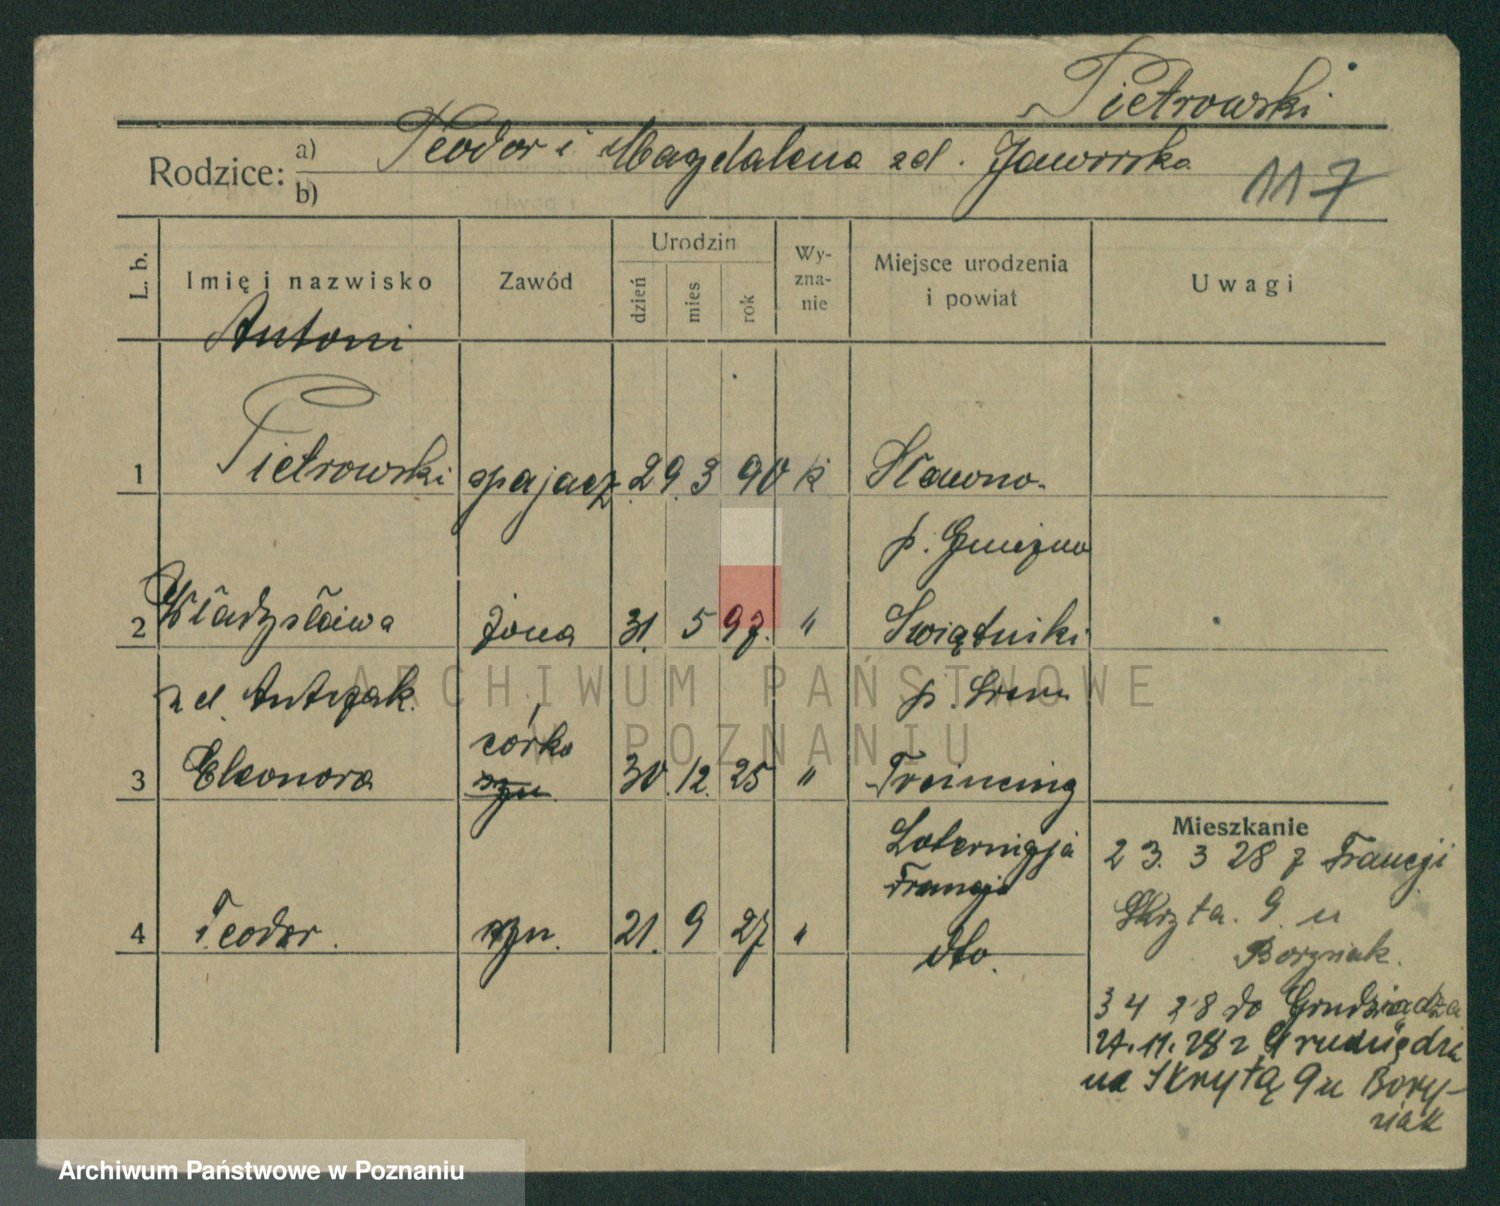 Pietrowski
Rodzice: a) Teodor i Magdalena zd. Jaworska
b)
117
L. b. Imię i nazwisko Zawód Urodzin dzień mies rok Wy-zna-nie Miejsce urodzenia i powiat Uwagi
Antoni
1 Pietrowski spajacz 29. 3 90 k Sławno
p. Gniezno
2 Władysława żona 31. 5 97. " Swiątniki
zd. Antczak. p. Srem
córka
3 Eleonora syn 30 12. 25 "
Mieszkanie
Francja
23. 3 28 z Francji
4 Teodor. syn. 21. 9 27 " dto.
Skryta. 9 u
Boryniak.
3 4 28 do Grudziądza
27. 11. 28 z Grudziądza
na Skrytą 9 u Bory-
niak
ARCHIWUM PAŃSTWOWE
W POZNANIU
Archiwum Państwowe w Poznaniu